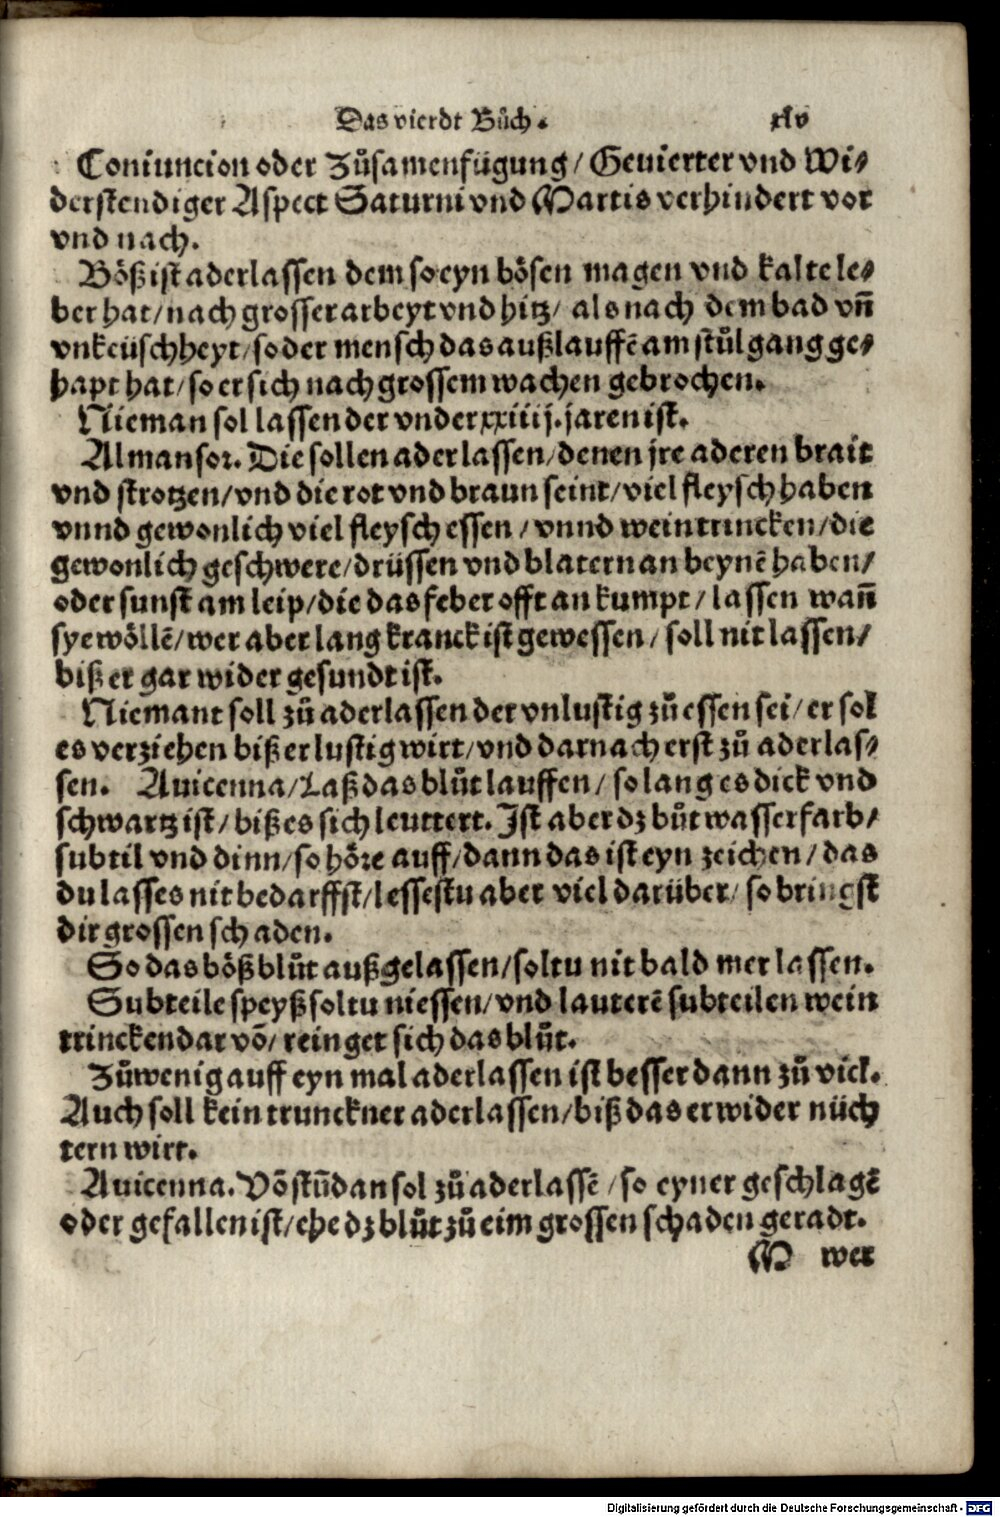 Das vierdt Bůch. xlv
Coniuncion oder Zůsamenfügung/ Geuierter vnd Wi⸗
derstendiger Aspect Saturni vnd Martis verhindert vor
vnd nach.
Bößist aderlassen dem so eyn bösen magen vnd kalte le⸗
ber hat/nach grosser arbeyt vnd hitz/ als nach dem bad vñ
vnkeüschheyt/so der mensch das außlauffẽ am stůlgang ge⸗
hapt hat/so er sich nach grossem wachen gebrochen.
Nieman sol lassen der vnder xxiiij.jaren ist.
Almansor. Die sollen aderlassen/denen jre aderen brait
vnd strotzen/vnd die rot vnd braun seint/viel fleysch haben
vnnd gewonlich viel fleysch essen/ vnnd wein trincken/die
gewonlich geschwere/drüssen vnd blatern an beynẽ haben/
oder sunst am leip/die das feber offt an kumpt/ lassen wañ
sye wöllẽ/wer aber lang kranck ist gewessen/ soll nit lassen/
biß er gar wider gesundt ist.
Niemant soll zů aderlassen der vnlustig zů essen sei/ er sol
es verziehen biß er lustig wirt/vnd darnach erst zů aderlas⸗
sen. Auicenna/Laß das blůt lauffen/ so lang es dick vnd
schwartz ist/ biß es sich leuttert. Ist aber dz bůt wasserfarb/
subtil vnd dinn/so höre auff/dann das ist eyn zeichen/ das
du lasses nit bedarffst/lessestu aber viel darüber/ so bringst
dir grossen schaden.
So das böß blůt außgelassen/soltu nit bald mer lassen.
Subteile speyß soltu niessen/vnd lauterẽ subteilen wein
trincken dar võ/ reinget sich das blůt.
Zůwenig auff eyn mal aderlassen ist besser dann zů viel.
Auch soll kein trunckner aderlassen/biß das er wider nüch
tern wirt.
Auicenna. Võ stůdan sol zů aderlassẽ/ so eyner geschlagẽ
oder gefallen ist/ehe dz blůt zů eim grossen schaden geradt.
M wer
Digitalisierung gefördert durch die Deutsche Forschungsgemeinschaft - DFG